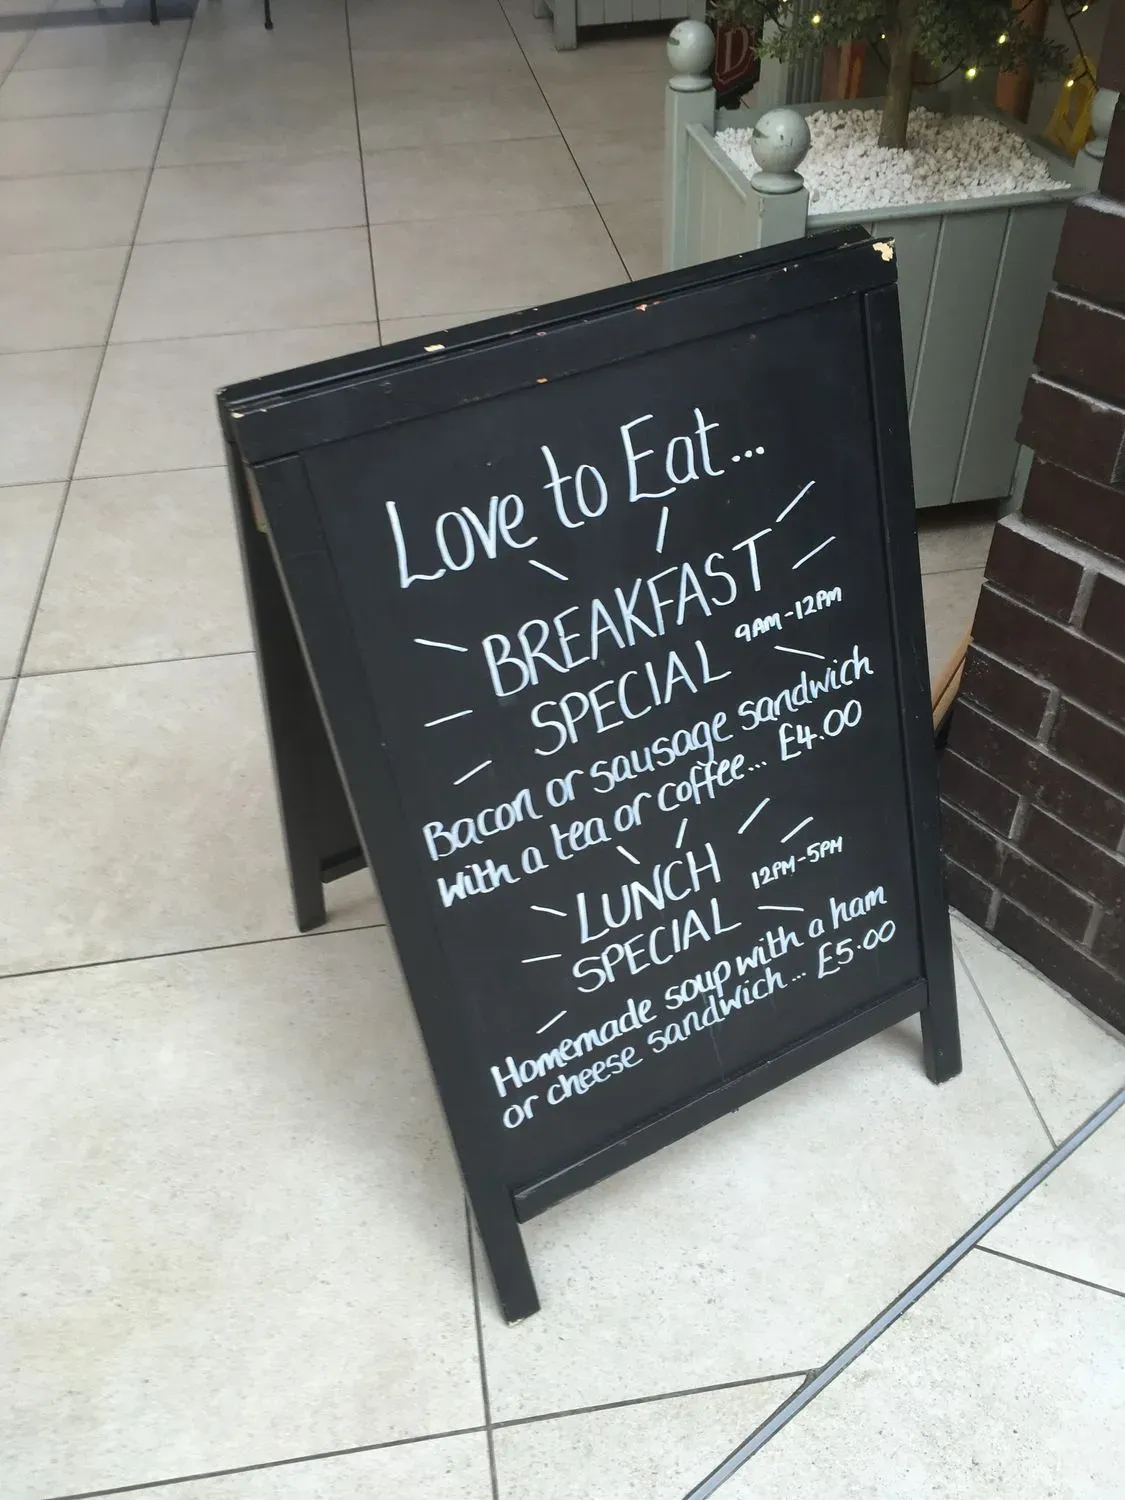 Love to Eat...
BREAKFAST
SPECIAL 9AM-12PM
Bacon or sausage sandwich
with a tea or coffee... £4.00
LUNCH
SPECIAL 12PM-5PM
Homemade soup with a ham
or cheese sandwich... £5.00
D